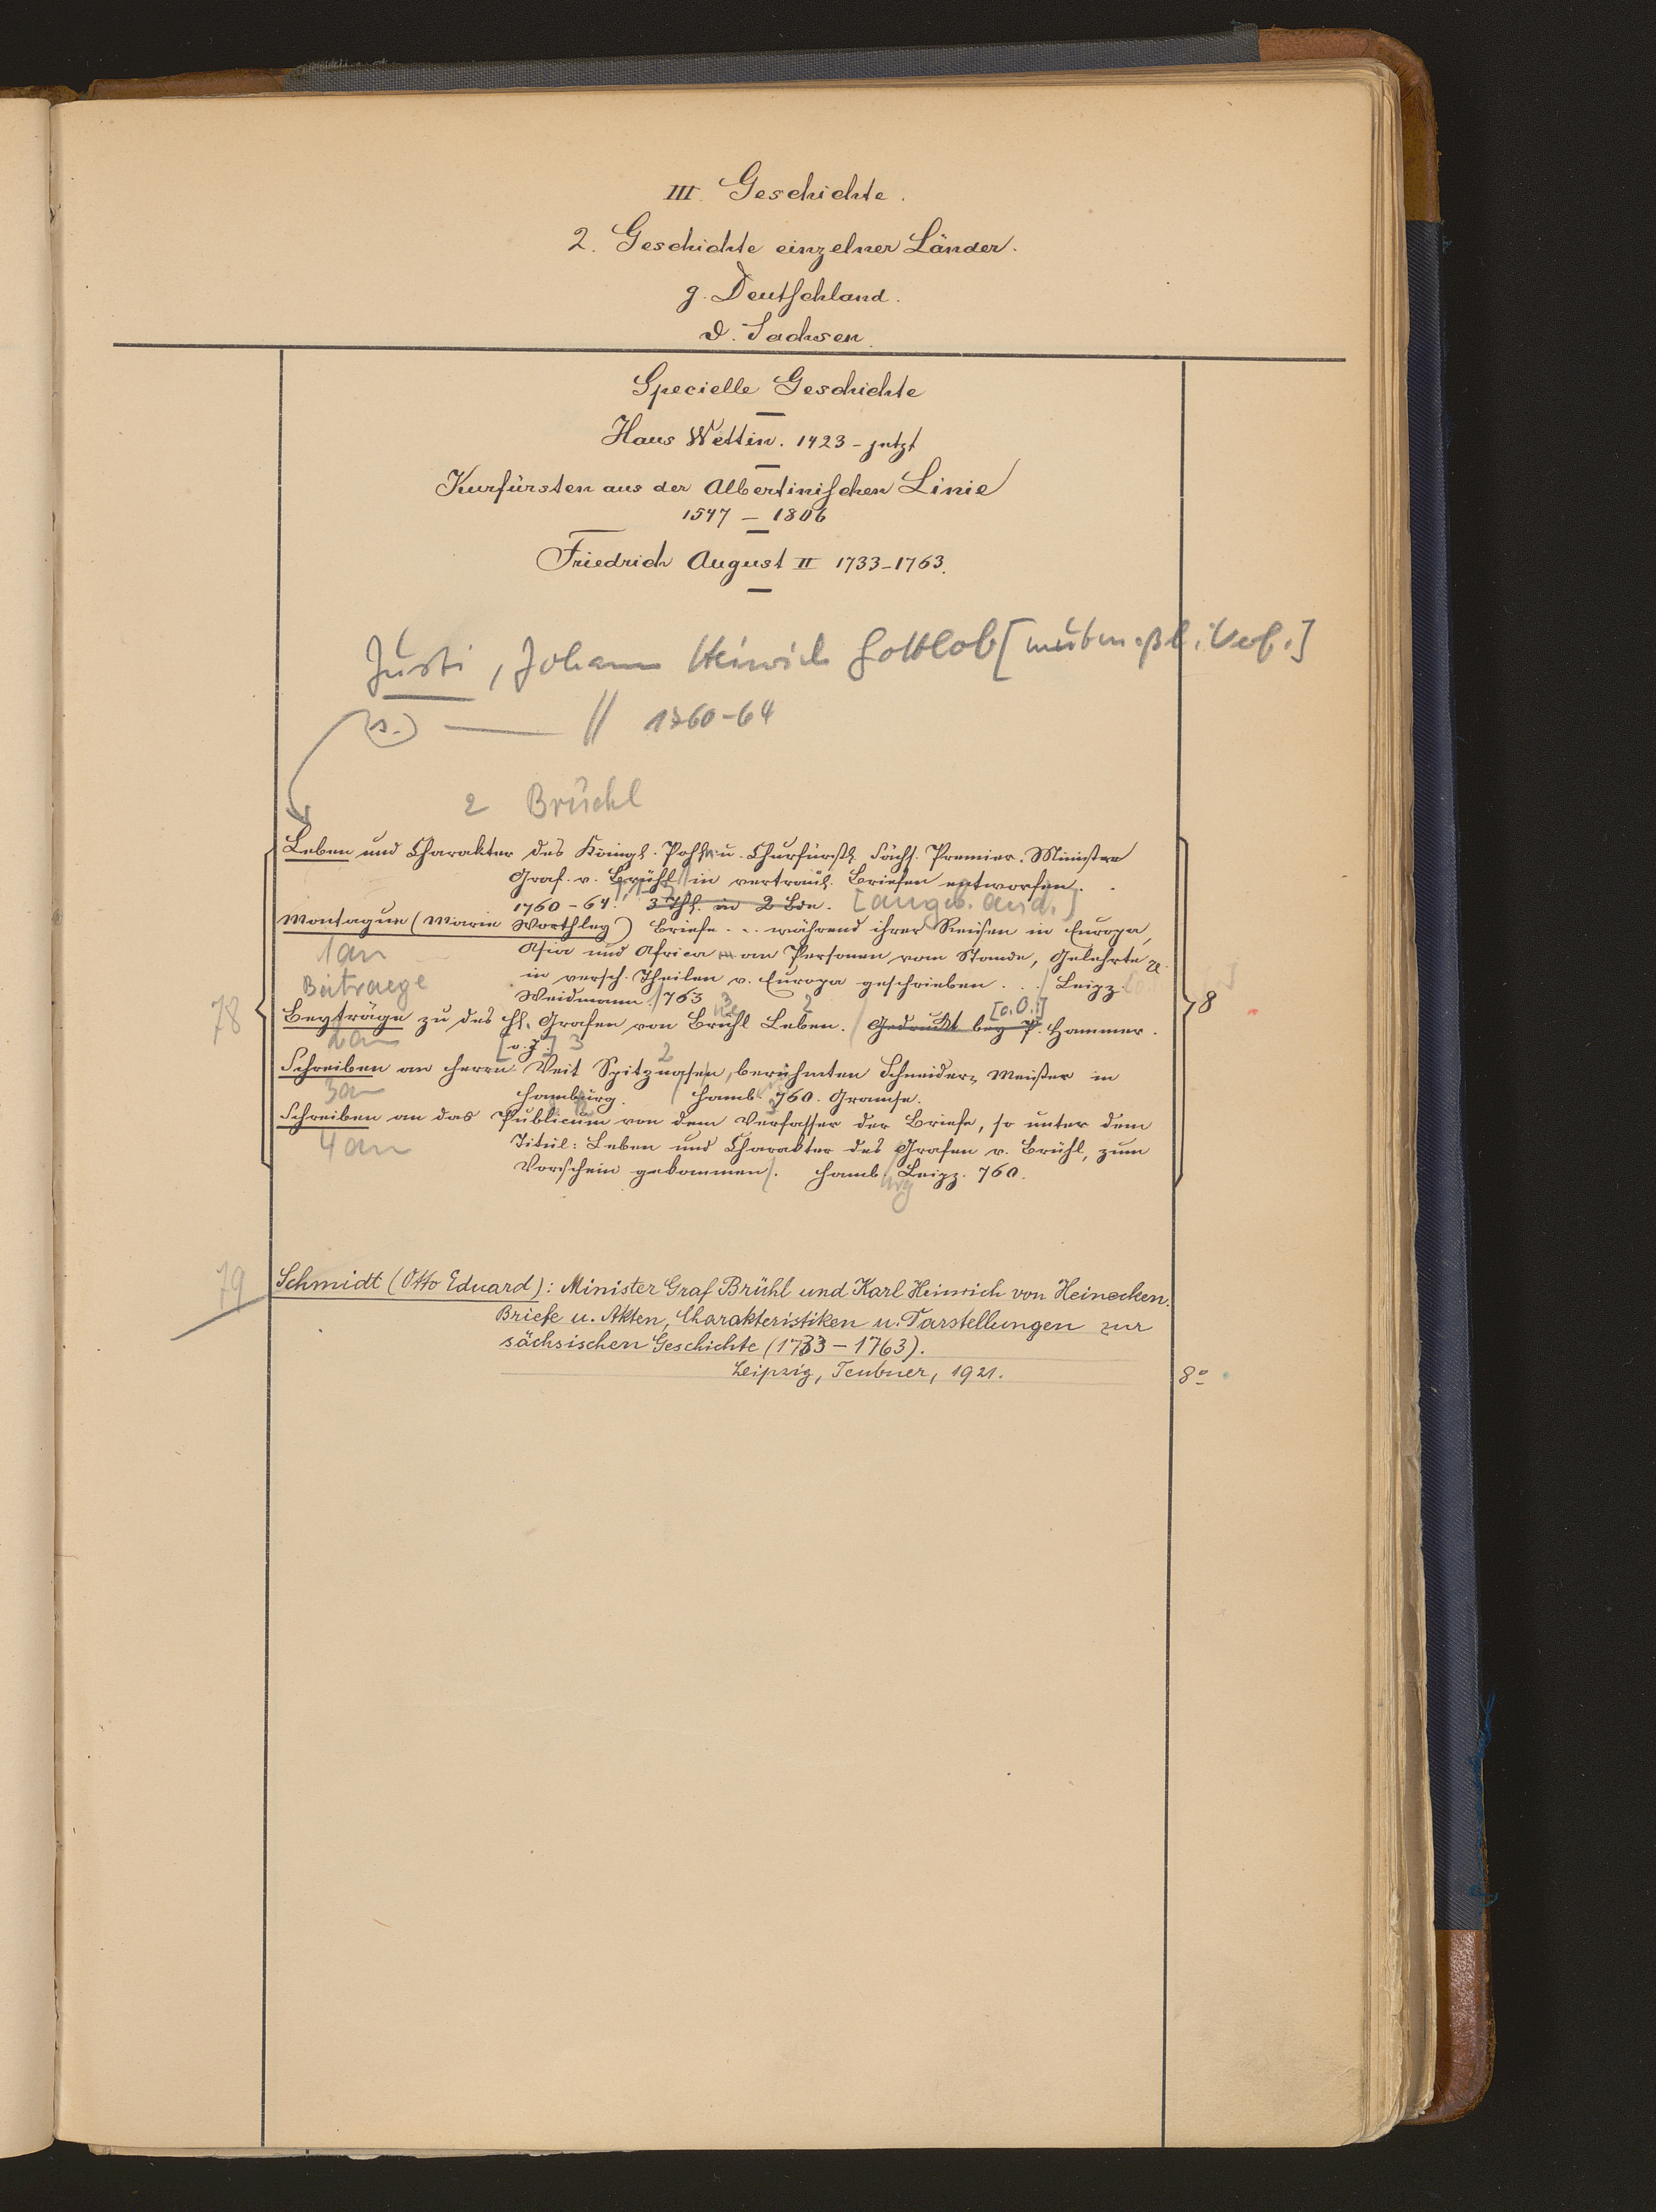 III. Geschichte.
2. Geschichte einzelner Länder.
g. Deutschland.
d. Sachsen.
Specielle Geschichte
Haus Wettin. 1423 - jetzt
Kurfürsten aus der Albertinischen Linie
1547 - 1806
Friedrich August II 1733-1763.
Justi, Johann Heinrich Gottlob [mutmaßl. Verf.]
(s.) // 1760-64
2 Brüchl
Leben und Charakter des Königl. Pohln. u. Churfürstl. Sächs. Premier-Minister
Graf. v. Brühl in vertraul. Briefen entworfen.
1760-64. 3 Thl. in 2 Bde. [angeb. and.]
Montague (Marie Worthley) Briefe ... während ihrer Reisen in Europa,
1an Asia und Africa an Personen vom Stande, Gelehrte
Beitraege in versch. Theilen v. Europa geschrieben . . Leipz.
Weidmann. 763
78 Beyträge zu des H. Grafen von Brühl Leben. Gedruckt bey P. Hammer. [o.O.] 8
2an [o.J.]
Schreiben an Herrn Veit Spitznasen, berühmten Schneider-Meister in
3an Hamburg. Hamb. 760. Gramse.
Schreiben an das Publicum von dem Verfasser der Briefe, so unter dem
4an Titul: Leben und Charakter des Grafen v. Brühl, zum
Vorschein gekommen. Hamb. Leipz. 760.
79 Schmidt (Otto Eduard): Minister Graf Brühl und Karl Heinrich von Heinecken.
Briefe u. Akten, Charakteristiken u. Darstellungen zur
sächsischen Geschichte (1733-1763).
Leipzig, Teubner, 1921. 8º